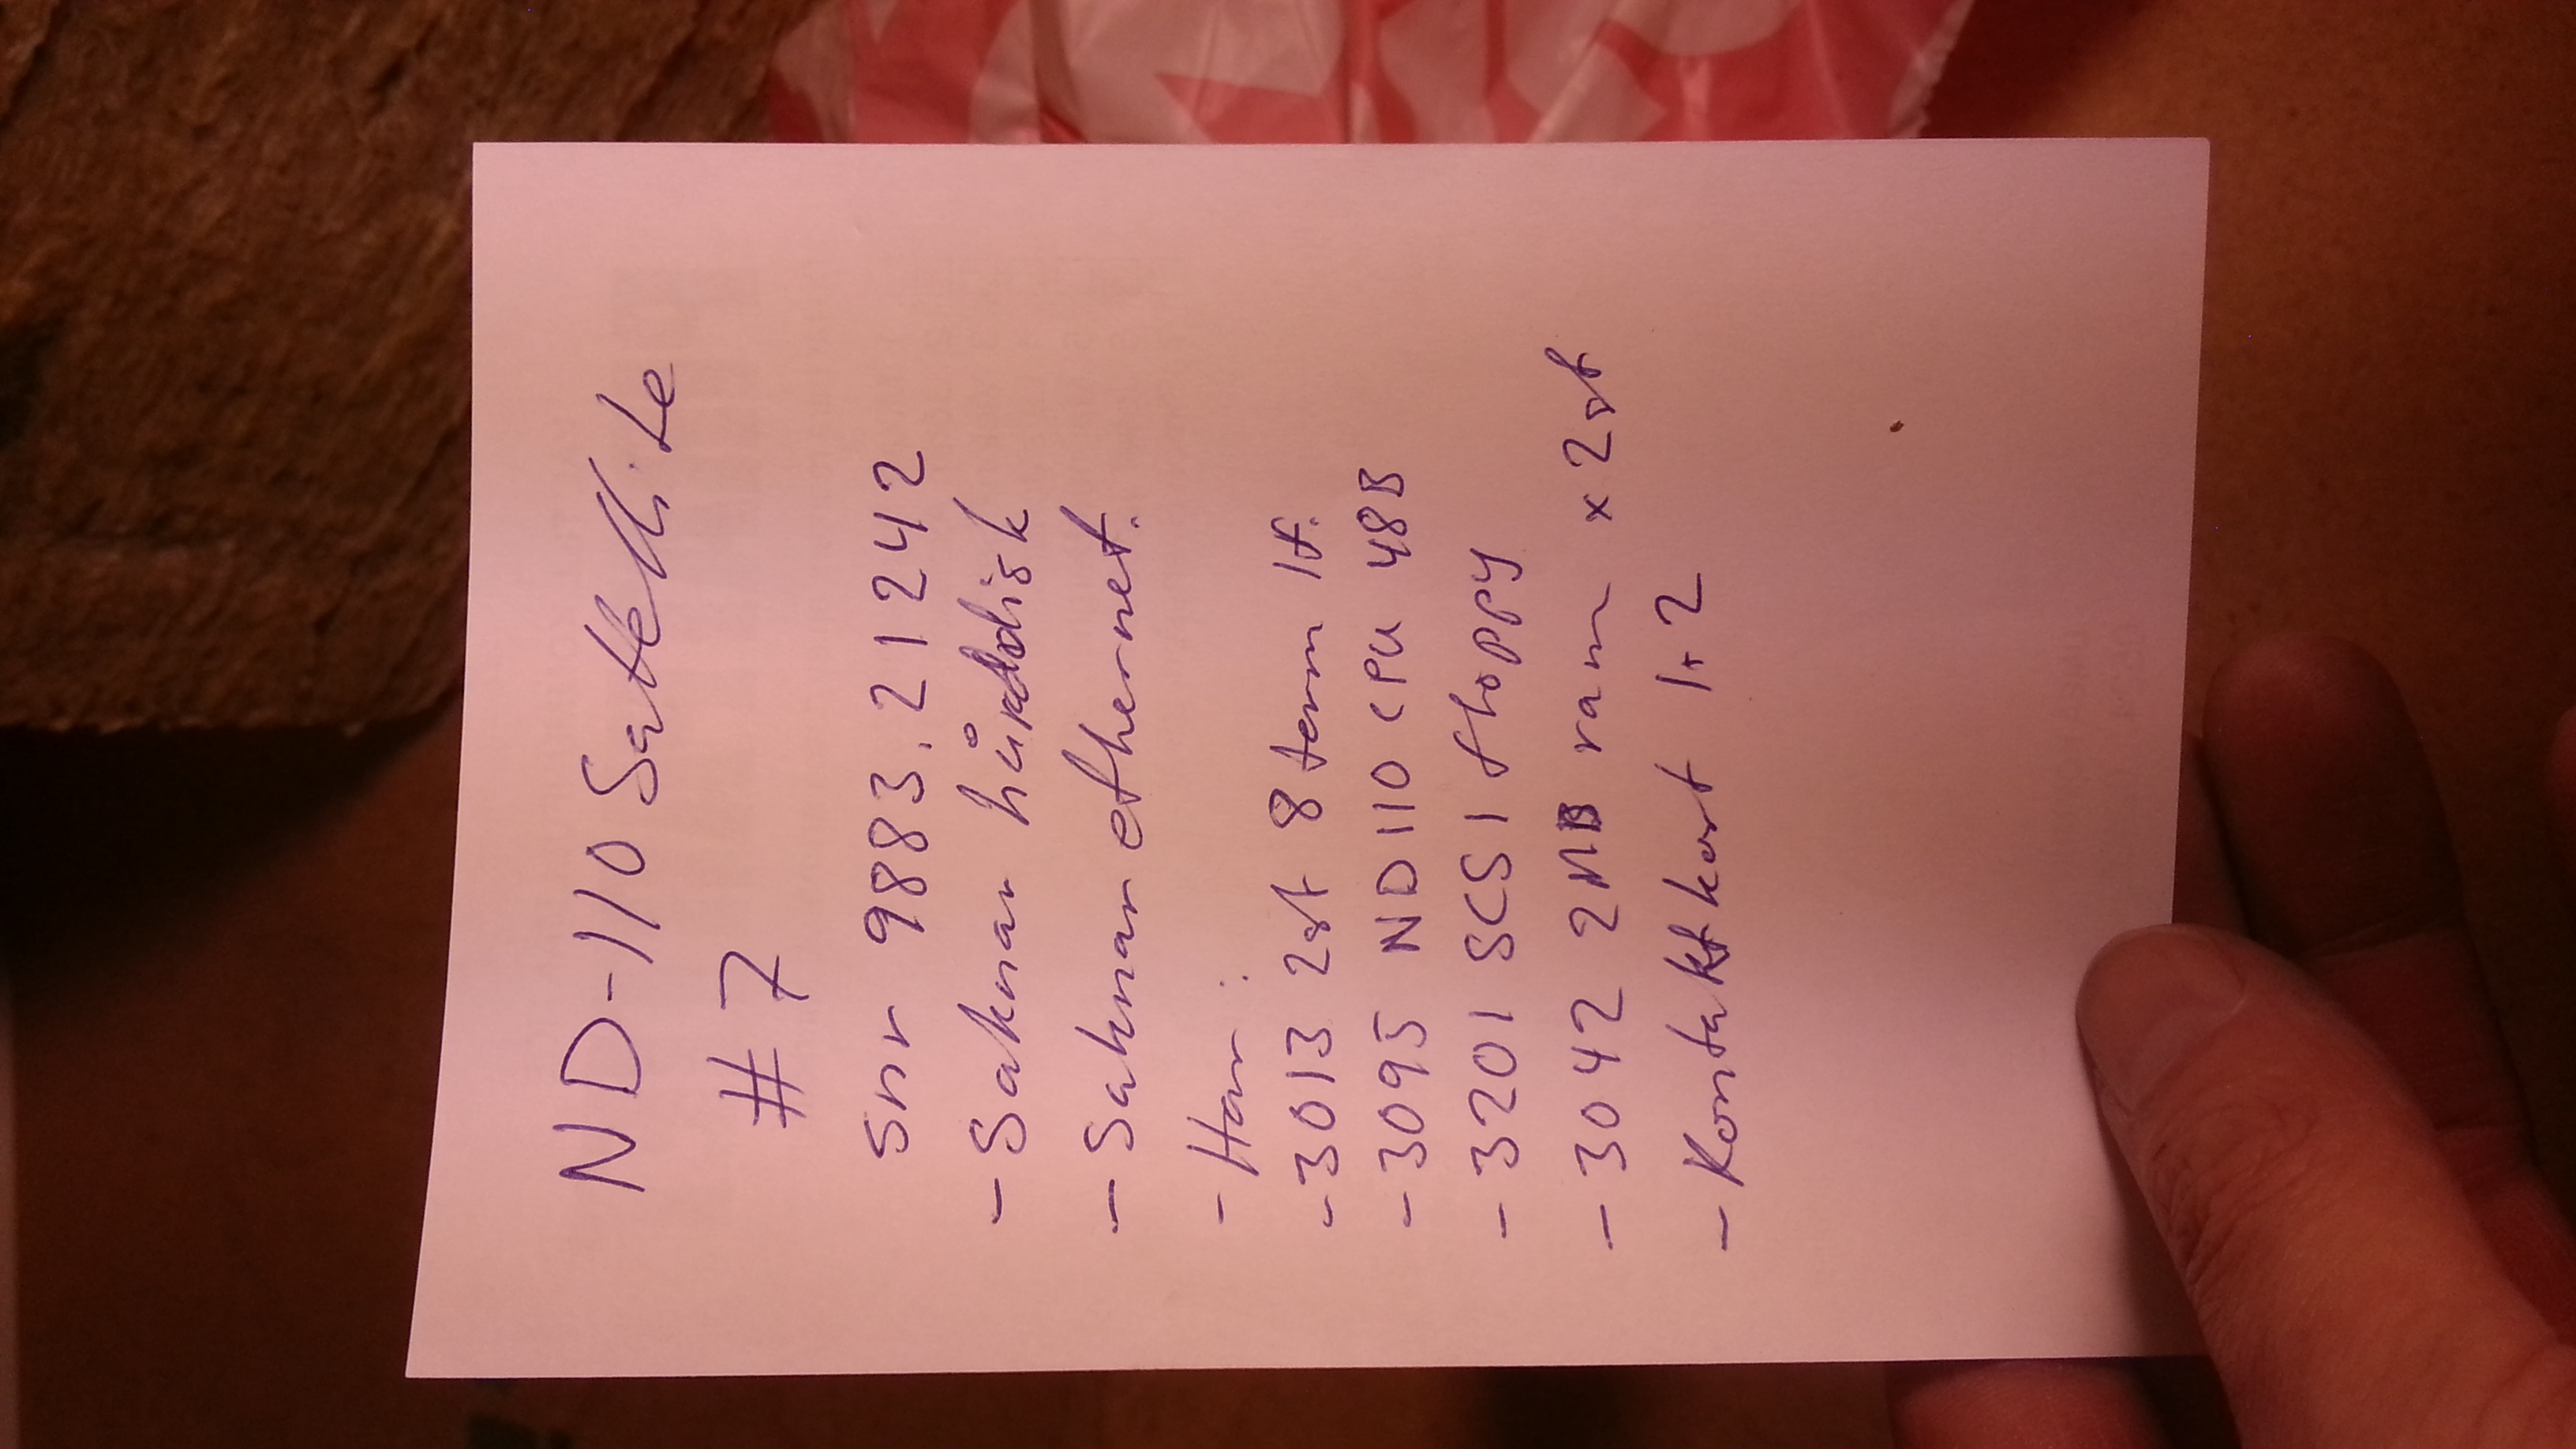 ND-110 Satellite
#7
snr 9883.21242
- Saknar hårddisk
- Saknar ethernet.
- Har:
- 3013 2st 8 term If.
- 3095 ND110 CPU 48B
- 3201 SCSI floppy
- 3042 2MB ram x 2st
- Kontaktkort 1+2